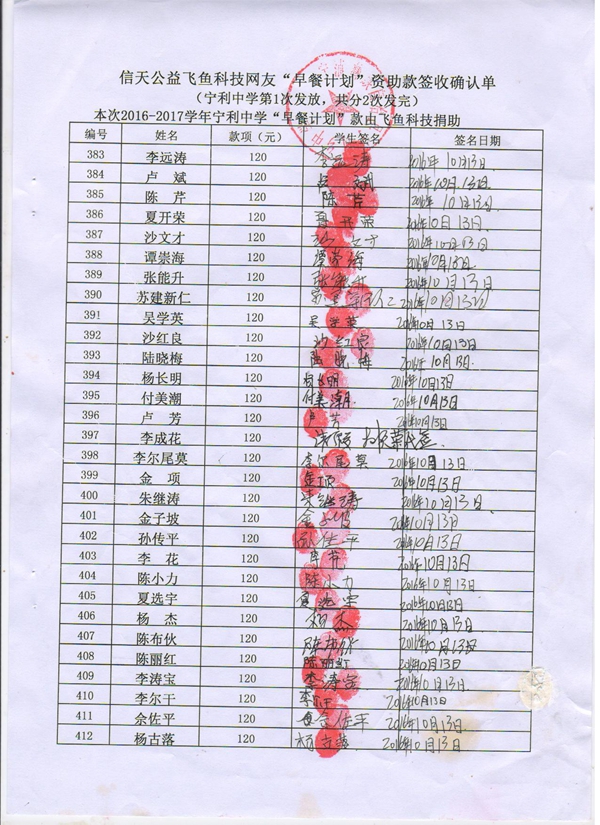 信天公益飞鱼科技网友“早餐计划”资助款签收确认单
（宁利中学第1次发放，共分2次发完）
本次2016-2017学年宁利中学“早餐计划”款由飞鱼科技捐助
编号 姓名 款项（元） 学生签名 签名日期
383 李远涛 120 李远涛 2016年10月13日
384 卢斌 120 2016年10月13日
385 陈芹 120 陈芹 2016年10月13日
386 夏开荣 120 夏开荣 2016年10日13日
387 沙文才 120 2016年10月13日
388 谭崇海 120 谭崇海 2016年10月13日
389 张能升 120 张能升 2016年10月13日
390 苏建新仁 120 2016年10月13日
391 吴学英 120 吴学英 2016年10月13日
392 沙红良 120 沙红良 2016年10月13日
393 陆晓梅 120 陆晓梅 2016年10月13日
394 杨长明 120 杨长明 2016年10月13日
395 付美潮 120 付美潮 2016年10月13日
396 卢芳 120 卢芳 2016年10月13日
397 李成花 120
398 李尔尾莫 120 李尔尾莫 2016年10月13日
399 金项 120 金项 2016年10月13日
400 朱继涛 120 朱继涛 2016年10月13日
401 金子坡 120 2016年10月13日
402 孙传平 120 孙传平 2016年10月13日
403 李花 120 2016年10月13日
404 陈小力 120 陈小力 2016年10月13日
405 夏选宇 120 2016年10月13日
406 杨杰 120 杨杰 2016年10月13日
407 陈布伙 120 2016年10月13日
408 陈丽红 120 陈丽红 2016年10月13日
409 李涛宝 120 李涛宝 2016年10月13日
410 李尔干 120 2016年10月13日
411 佘佐平 120 2016年10月13日
412 杨古落 120 杨古落 2016年10月13日